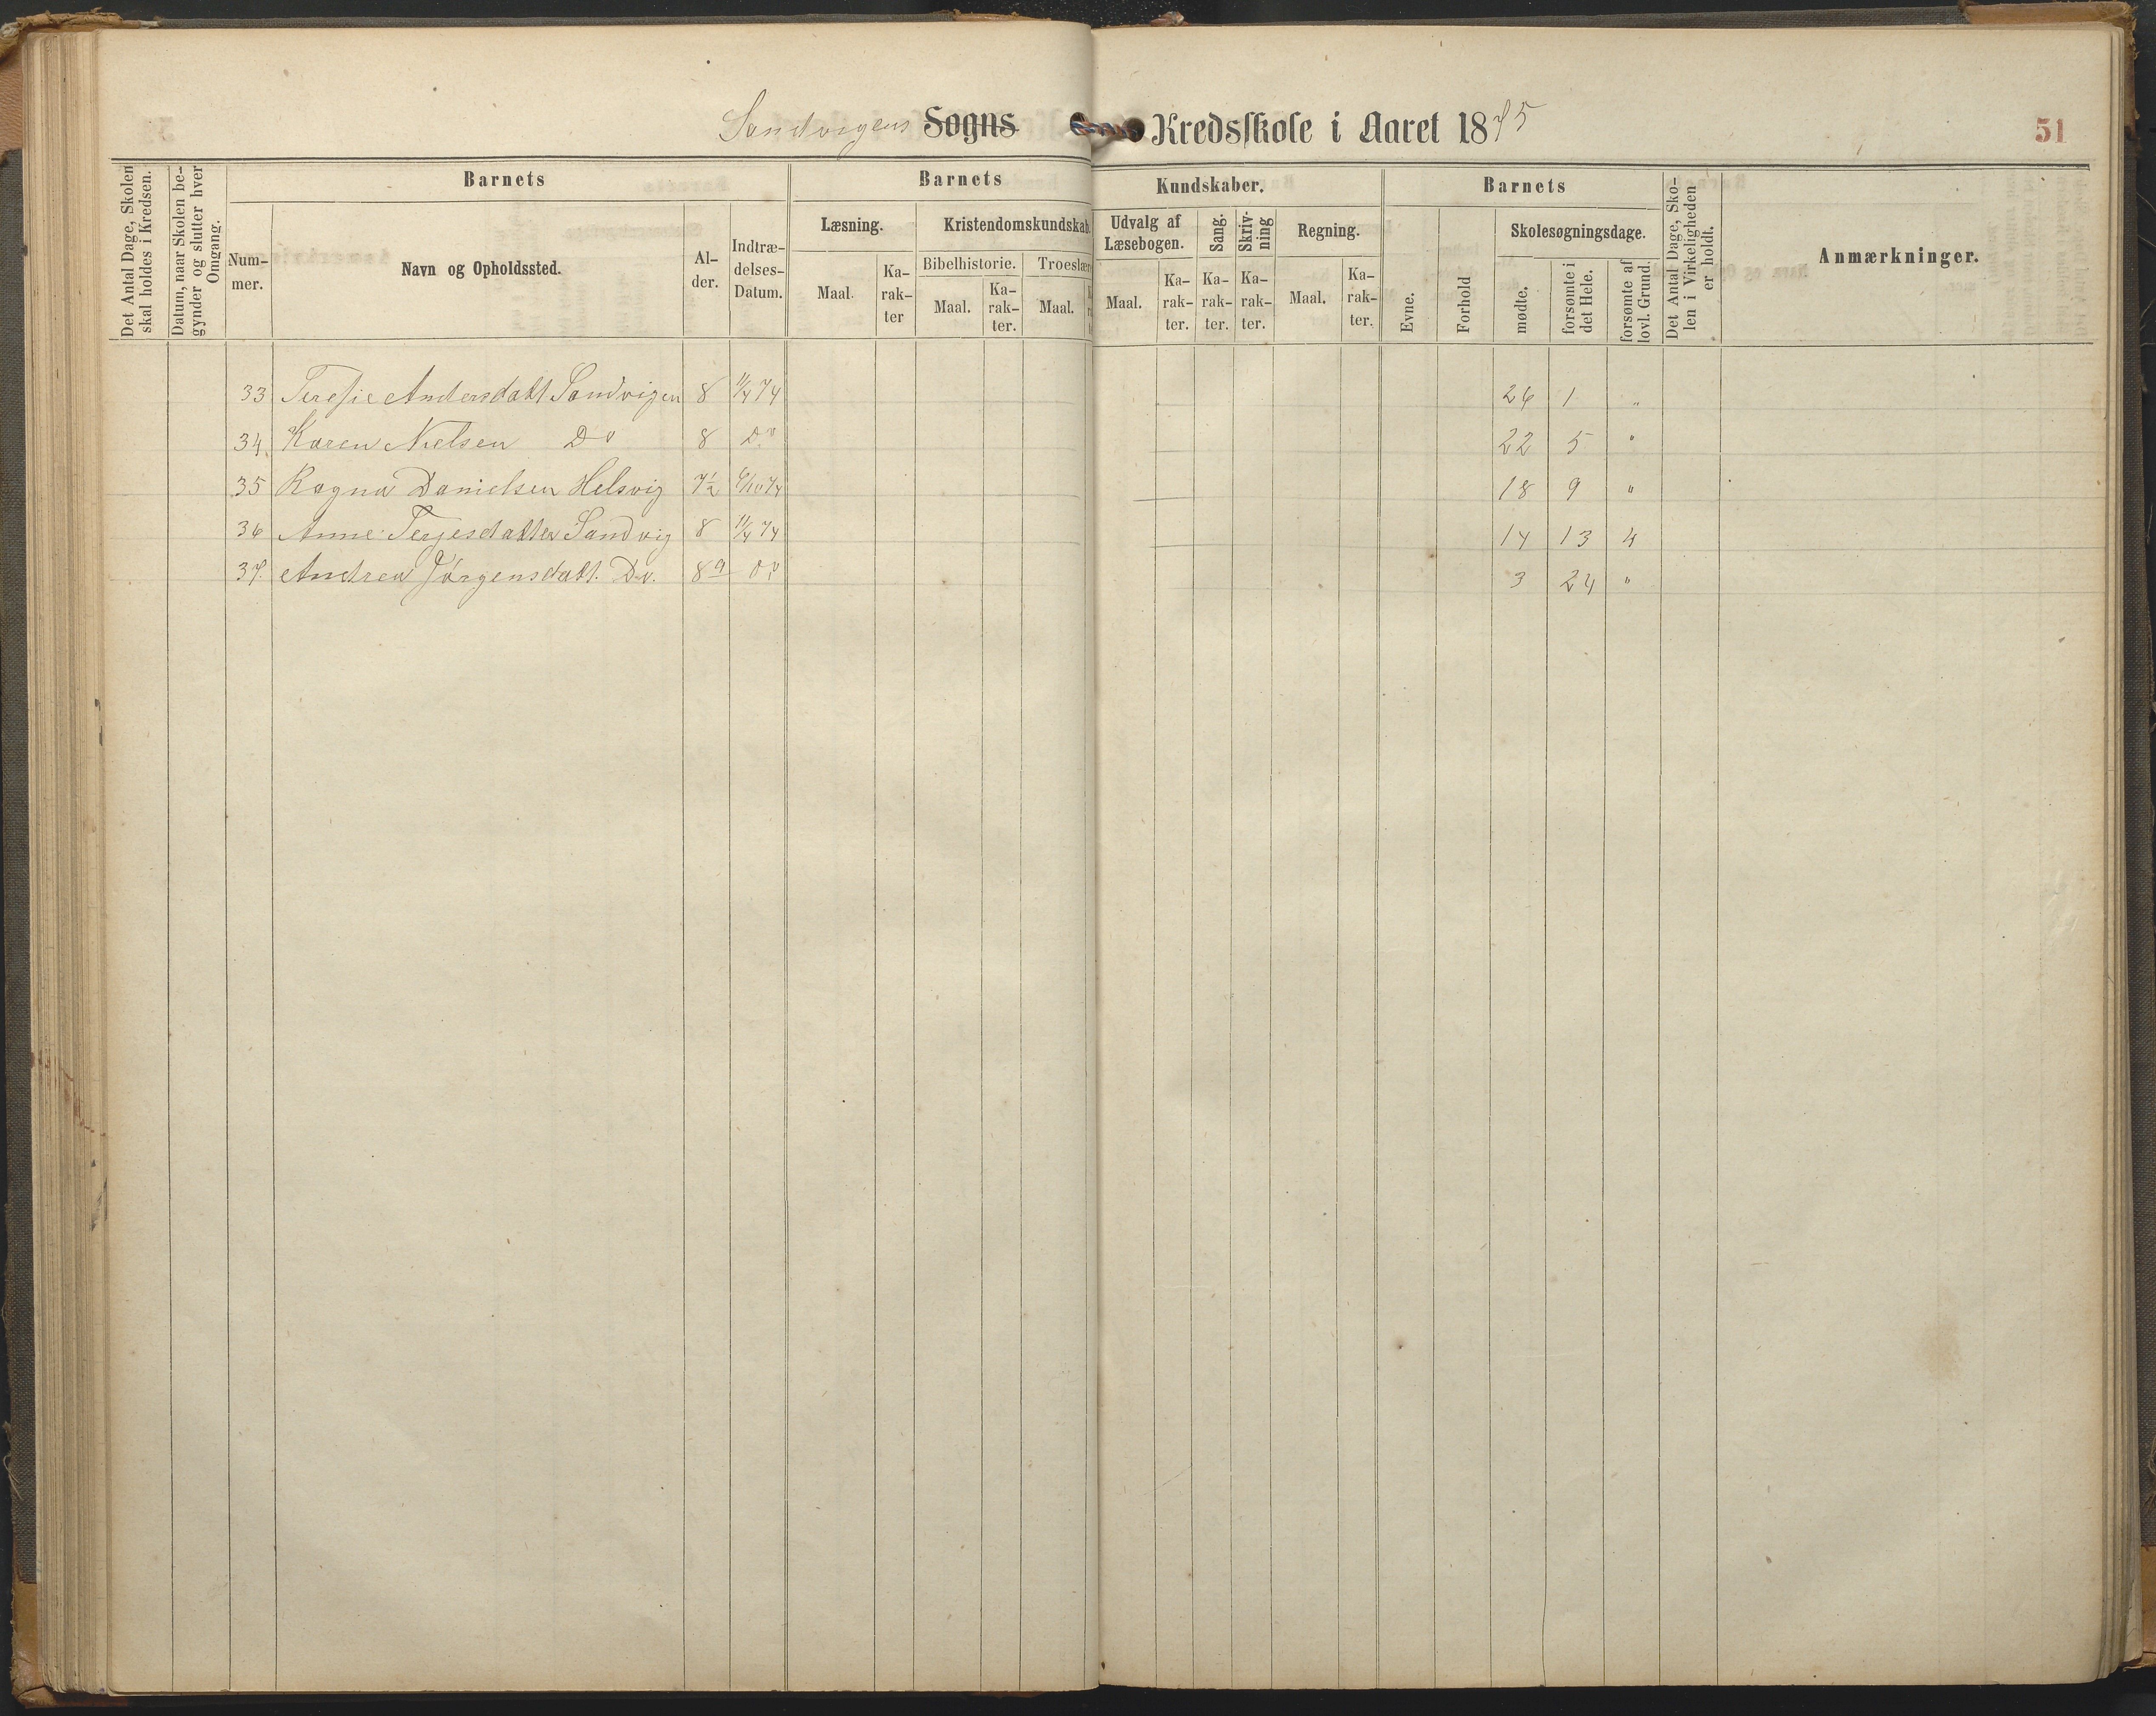 Sandvigens Sogns Kredsskole i Aaret 1875
51
Det Antal Dage, Skolen skal holdes i Kredsen.
Datum, naar Skolen begynder og slutter hver Omgang.
Barnets
Nummer.
Navn og Opholdssted.
Alder.
Indtrædelses-Datum.
Barnets
Læsning.
Maal.
Karakter
Kristendomskundskab.
Bibelhistorie.
Maal.
Karakter.
Troeslær
Maal.
Kundskaber.
Udvalg af Læsebogen.
Maal.
Karakter.
Sang.
Karakter.
Skrivning
Karakter.
Regning.
Maal.
Karakter.
Barnets
Evne.
Forhold
Skolesøgningsdage.
mødte.
forsømte i det Hele.
forsømte af lovl. Grund.
Det Antal Dage, Skolen i Virkeligheden er holdt.
Anmærkninger.
33 Teresie Andersdatt Sandvigen 8 11/4 74 26 1 "
34. Karen Nielsen Do 8 Do 22 5 "
35 Ragna Danielsen Helsvig 7½ 6/10 74 18 9 "
36 Anne Terjesdatter Sandvig 8 11/4 74 14 13 4
37. Andrea Jörgensdatt. Do. 8 Do 3 24 "